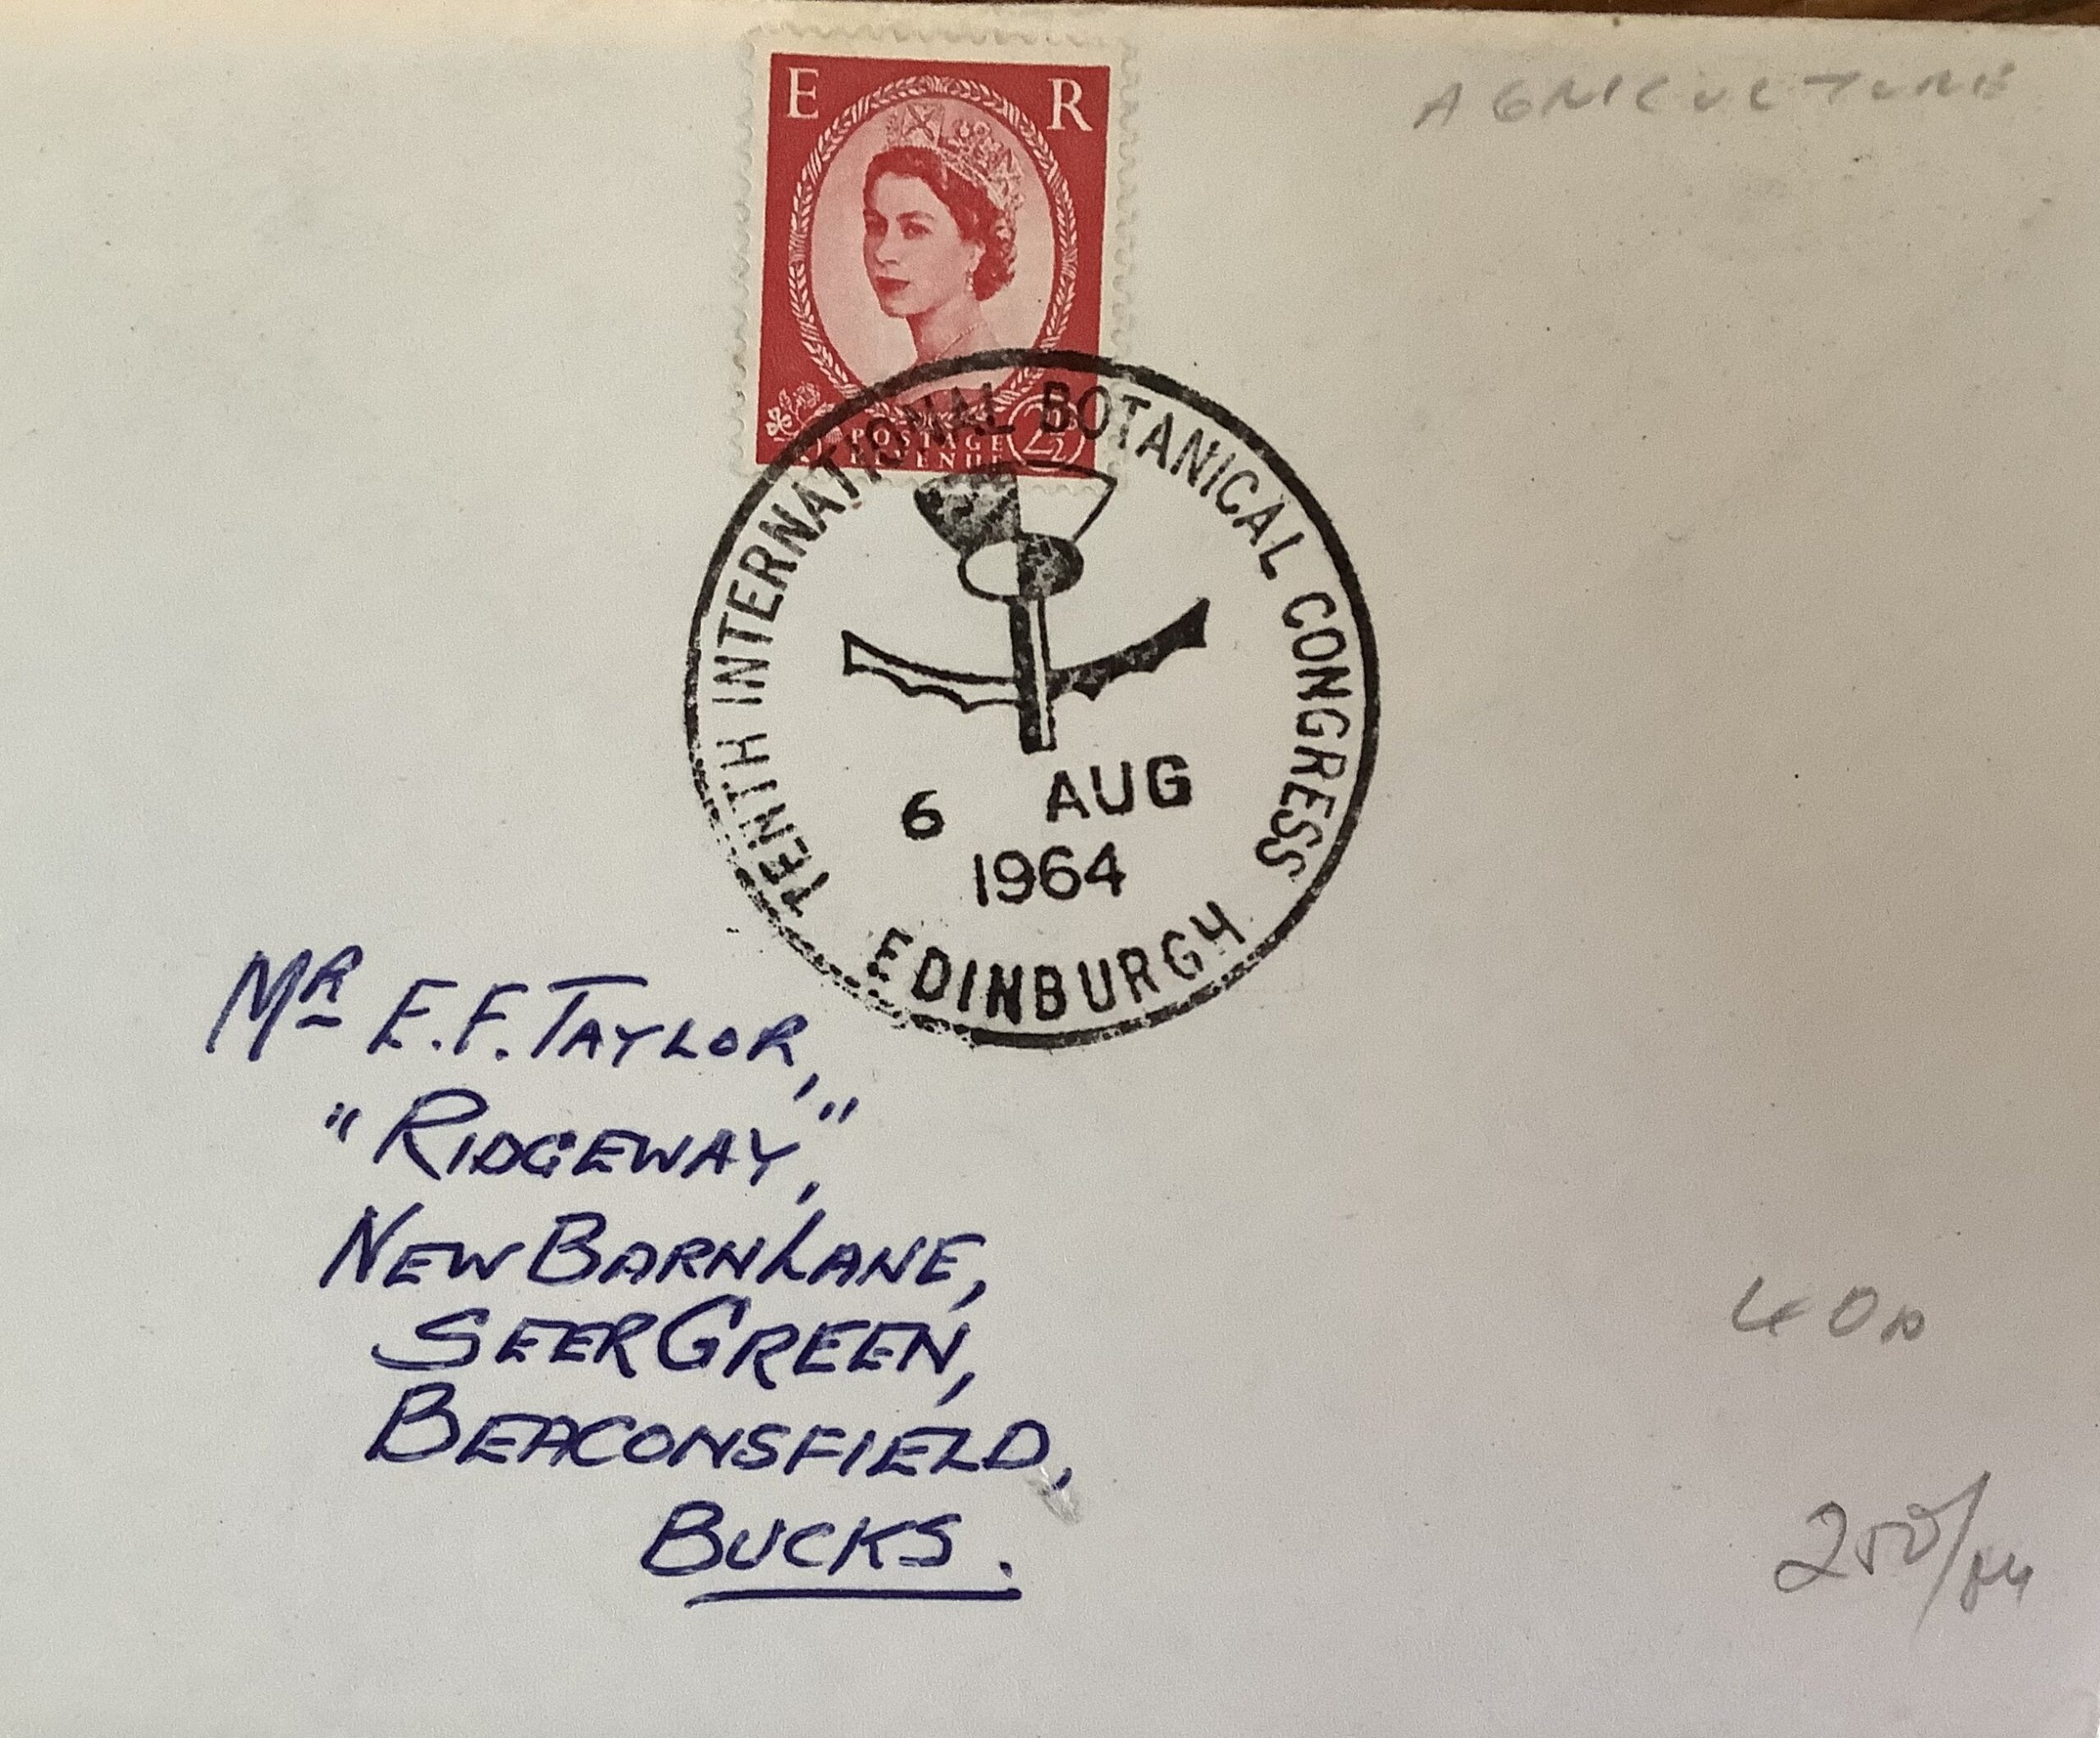 AGRICULTURE
E R
POSTAGE
REVENUE
2½D
TENTH INTERNATIONAL BOTANICAL CONGRESS
6 AUG
1964
EDINBURGH
Mr E.F. TAYLOR,
"RIDGEWAY,"
NEW BARN LANE,
SEER GREEN,
BEACONSFIELD,
BUCKS.
40p